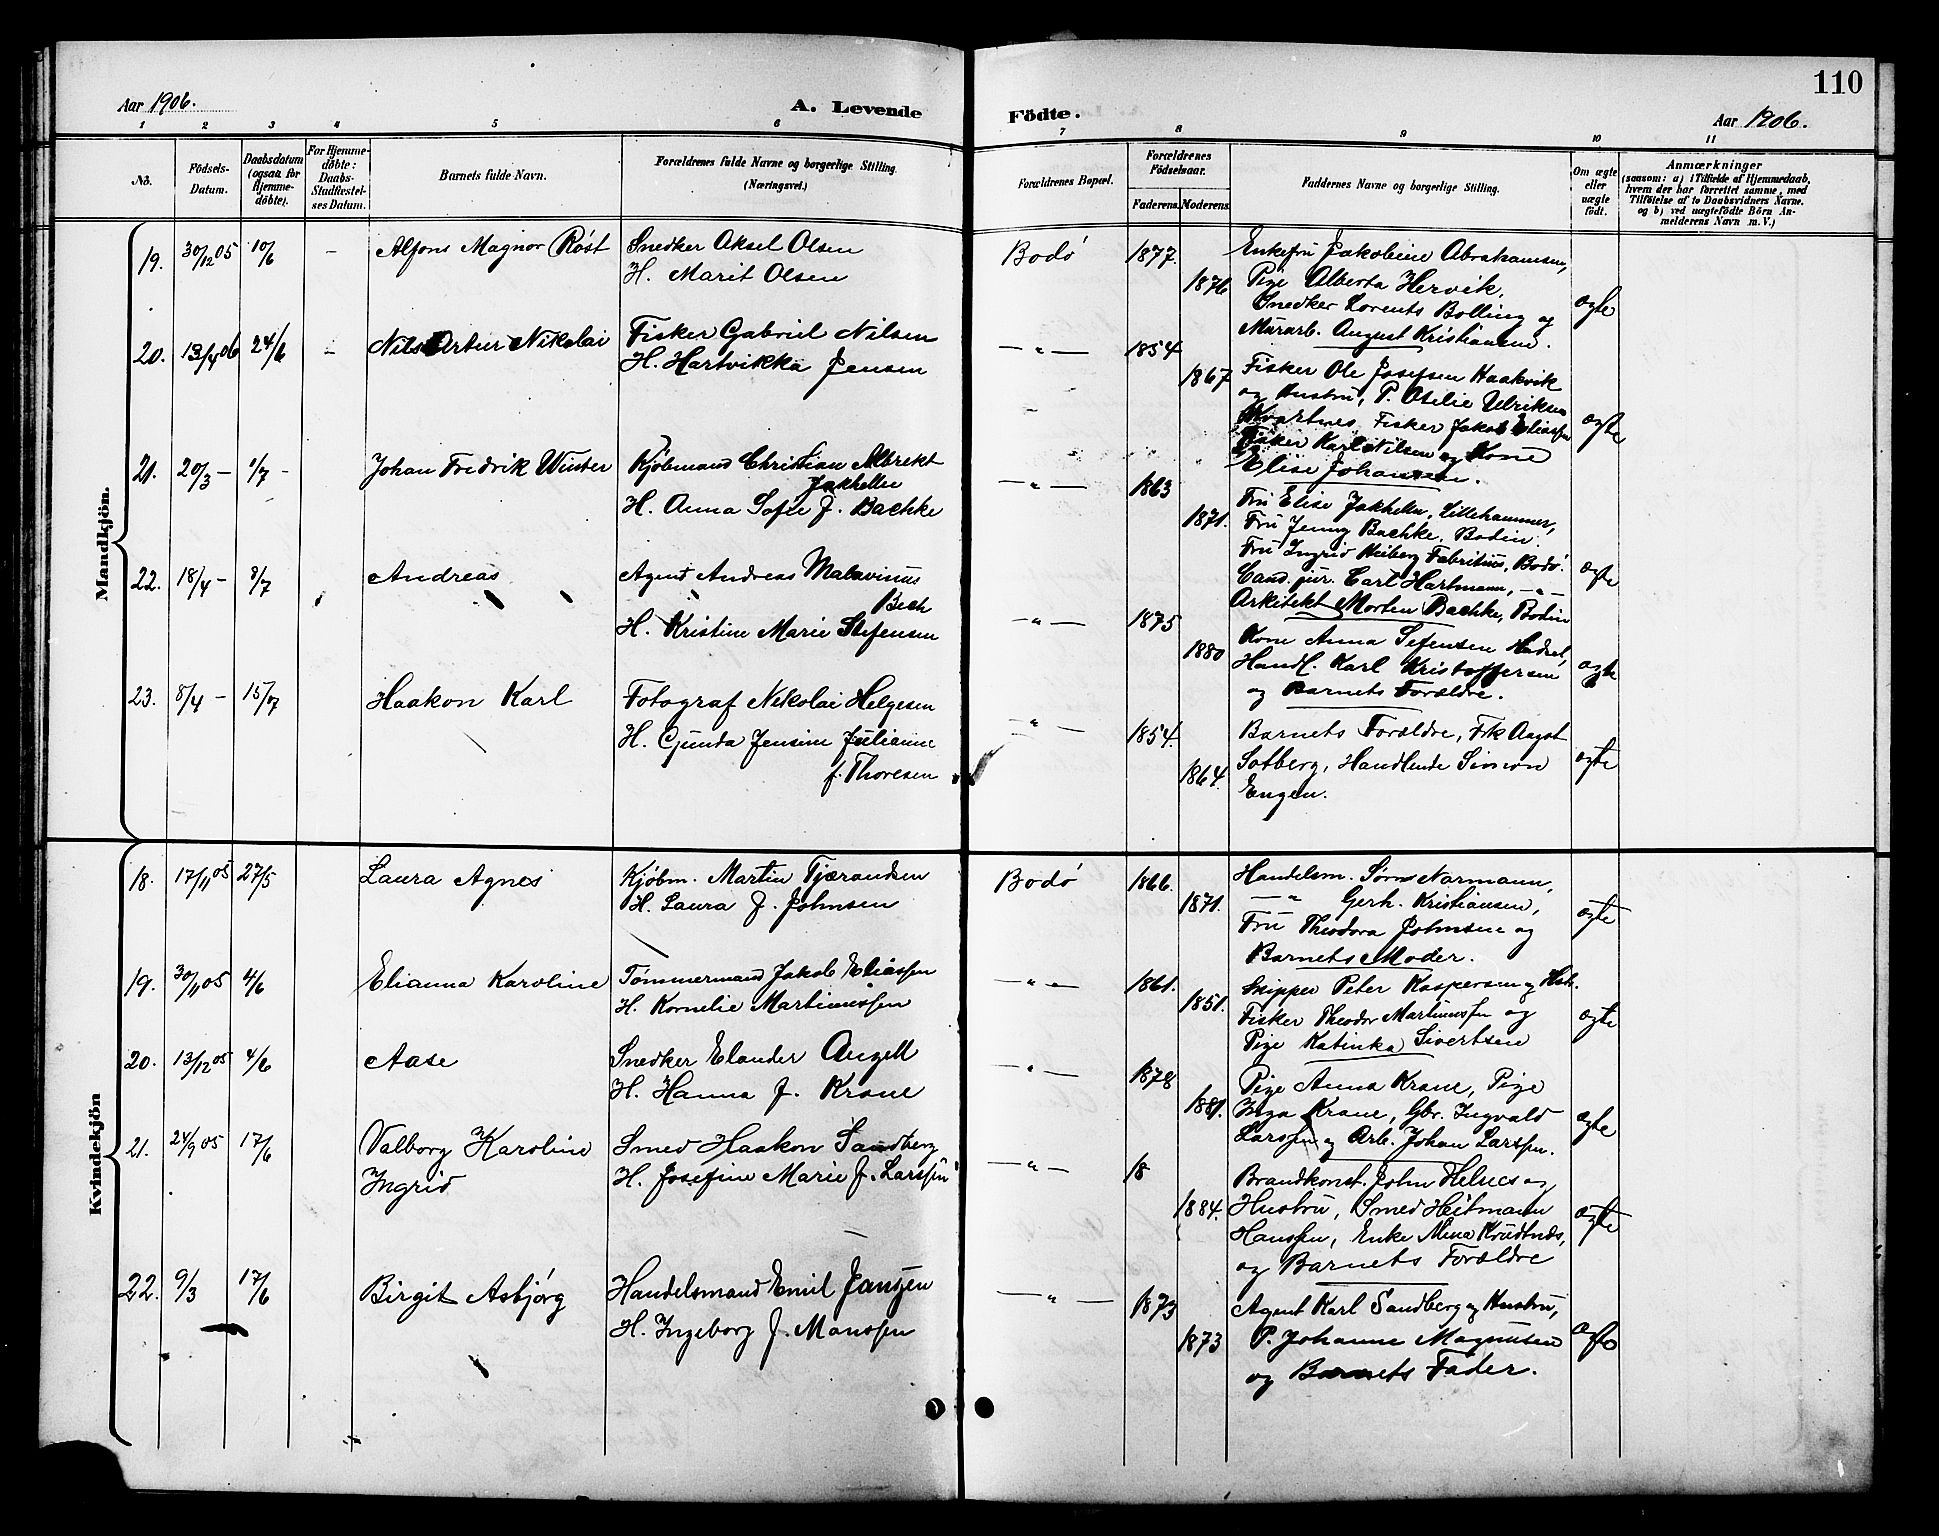 110
Aar 1906.
A. Levende
Födte.
Aar 1906.
1 2 3 4 5 6 7 8 9 10 11
No.
Födsels-
Datum.
Daabsdatum
(ogsaa for
Hjemme-
döbte).
For Hjemme-
döbte:
Daabs-
Stadfæstel-
ses Datum.
Barnets fulde Navn.
Forældrenes fulde Navne og borgerlige Stilling.
(Næringsvei.)
Forældrenes Bopæl.
Forældrenes
Födselsaar.
Faderens. Moderens.
Faddernes Navne og borgerlige Stilling.
Om ægte
eller
uægte
födt.
Anmærkninger
(saasom: a) i Tilfælde af Hjemmedaab,
hvem der har forrettet samme, med
Tilföielse af to Daabsvidners Navne.
og b) ved uægtefödte Börn An-
melderens Navn m. V.)
Mandkjön.
19. 30/12 05 10/6 - Alfons Magnor Röst
Snedker Aksel Olsen
H. Marit Olsen
Bodö 1877. 1876
Enkefru Jakobine Abrahamsen,
Pige Alberta Hervik,
Snedker Lorents Bolling og
Murarb. August Kristiansen.
ægte
20. 13/4 06 24/6 - Nils Artur Nikolai
Fisker Gabriel Nilsen
H. Hartvikka Jensen
— " — 1854 1867
Fisker Ole Josefsen Haakvik
og Hustru, P. Otelie Ulriksen
Kvartnes Fisker Jakob Eliassen
Fisker Karl Nilsen og Kone
Elise Johansen.
ægte
21. 20/3 - 1/7 - Johan Fredrik Winter
Kjöbmand Christian Albrekt
Jakhelln
H. Anna Sofie f. Bachke
— " — 1863 1871.
Fru Elise Jakhelln, Lillehammer,
Fru Jenny Bachke, Bodin.
Fru Ingrid Kiberg Fabritius, Bodö.
Cand. jur. Carl Hartmann, — " —
Arkitekt Morten Bachke, Bodin
ægte
22. 18/4 - 8/7 Andreas
Agent Andreas Malavinus
Bech
H. Kristine Marie Stefensen
— " — 1875 1880
Kone Anna Sefensen Hadsel,
Handl. Karl Kristoffersen
og Barnets Forældre.
ægte
23. 8/4 - 15/7 Haakon Karl
Fotograf Nikolai Helgesen
H. Gunda Jensine Julianne
f. Thoresen
— " — 1854. 1864.
Barnets Forældre, Frk Aagot
Solberg, Handlende Simon
Engen.
ægte
Kvindekjön
18. 17/11 05 27/5 Laura Agnes
Kjöbm. Martin Tjærandsen
H. Laura f. Johnsen
Bodö 1866. 1871.
Handelsm. Sörn Normann,
— " Gerh. Kristiansen,
Fru Theodora Johnsen og
Barnets Moder.
ægte
19. 30/11 05 4/6 Elianna Karoline
Tömmermand Jakob Eliassen
H. Kornelie Martinussen
— " — 1861. 1851.
Skipper Peter Kaspersen og Hst.
Fisker Theodor Martinussen og
Pige Katinka Sivertsen
ægte
20. 13/12 05 4/6 Aase
Snedker Elander Angell
H. Hanna f. Krane
— " — 1878 1881.
Pige Anna Krane, Pige
Inga Krane, Gbr. Ingvald
Larssen og Arb. Johan Larssen.
ægte
21. 24/9 05 17/6 Valborg Karoline
Ingrid
Smed Haakon Sandberg
H. Josefine Marie f. Larssen
— " — 18 1884.
Brandkonst. John Helnes og
Hustru, Smed Heitmann
Hanssen, Enke Mina Knudtnds,
og Barnets Forældre
ægte
22. 9/3 17/6 Birgit Asbjörg
Handelsmand Emil Janssen
H. Ingeborg f. Monssen
— " — 1873 1873
Agent Karl Sandberg og Hustru,
P. Johanne Magnusen
og Barnets Fader.
ægte